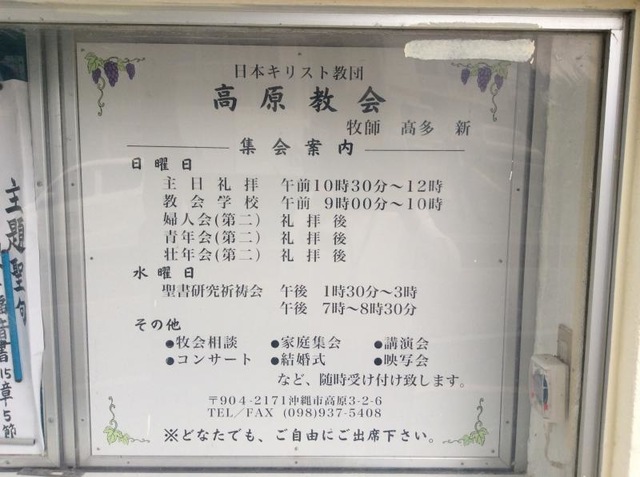 日本キリスト教団
高原教会
牧師 高多 新
集会案内
日曜日
主日礼拝 午前10時30分～12時
教会学校 午前 9時00分～10時
婦人会(第二) 礼拝後
青年会(第二) 礼拝後
壮年会(第二) 礼拝後
水曜日
聖書研究祈祷会 午後 1時30分～3時
午後 7時～8時30分
その他
●牧会相談 ●家庭集会 ●講演会
●コンサート ●結婚式 ●映写会
など、随時受け付け致します。
〒904-2171沖縄市高原3-2-6
TEL／FAX (098)937-5408
※どなたでも、ご自由にご出席下さい。
主題聖句
音書15章5節